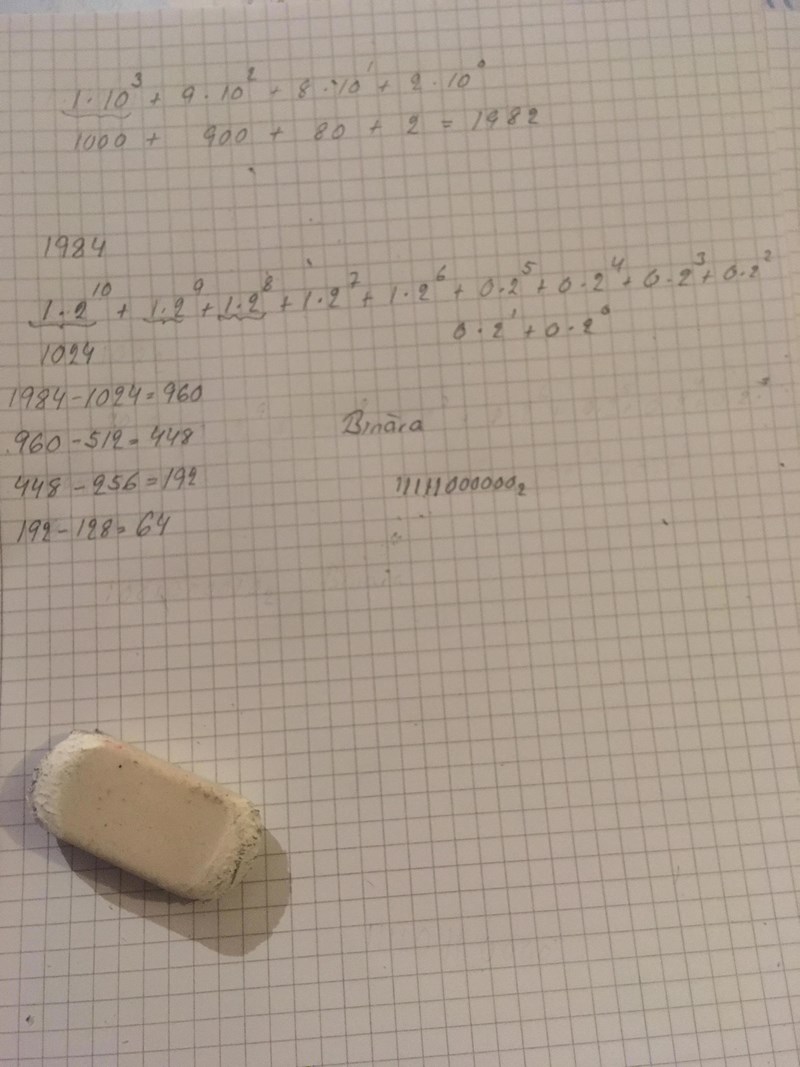 1·10³ + 9·10² + 8·10¹ + 2·10⁰
1000 + 900 + 80 + 2 = 1982
1984
1·2¹⁰ + 1·2⁹ + 1·2⁸ + 1·2⁷ + 1·2⁶ + 0·2⁵ + 0·2⁴ + 0·2³ + 0·2²
0·2¹ + 0·2⁰
1024
1984-1024=960
960-512=448
448-256=192
192-128=64
Binära
11111000000₂